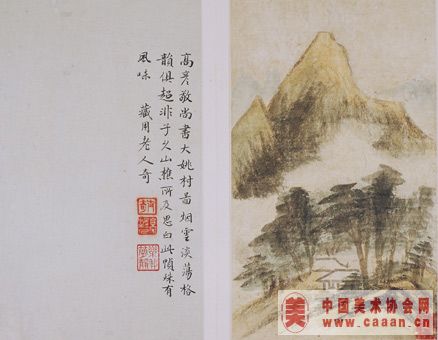 高彦敬尚書大姚村啚烟雲淡蕩格
韻俱超非子久山樵所及思白此幀殊有
風味 藏用老人奇
美 中国美术协会网
www.caaan.cn